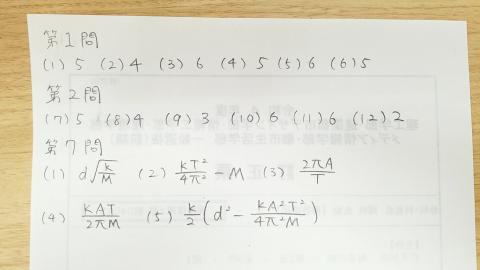 第1問
(1) 5 (2) 4 (3) 6 (4) 5 (5) 6 (6) 5
第2問
(7) 5 (8) 4 (9) 3 (10) 6 (11) 6 (12) 2
第7問
(1) d√(k/M) (2) kT²/4π² - M (3) 2πA/T
(4) kAT/2πM (5) k/2 (d² - kA²T²/4π²M)